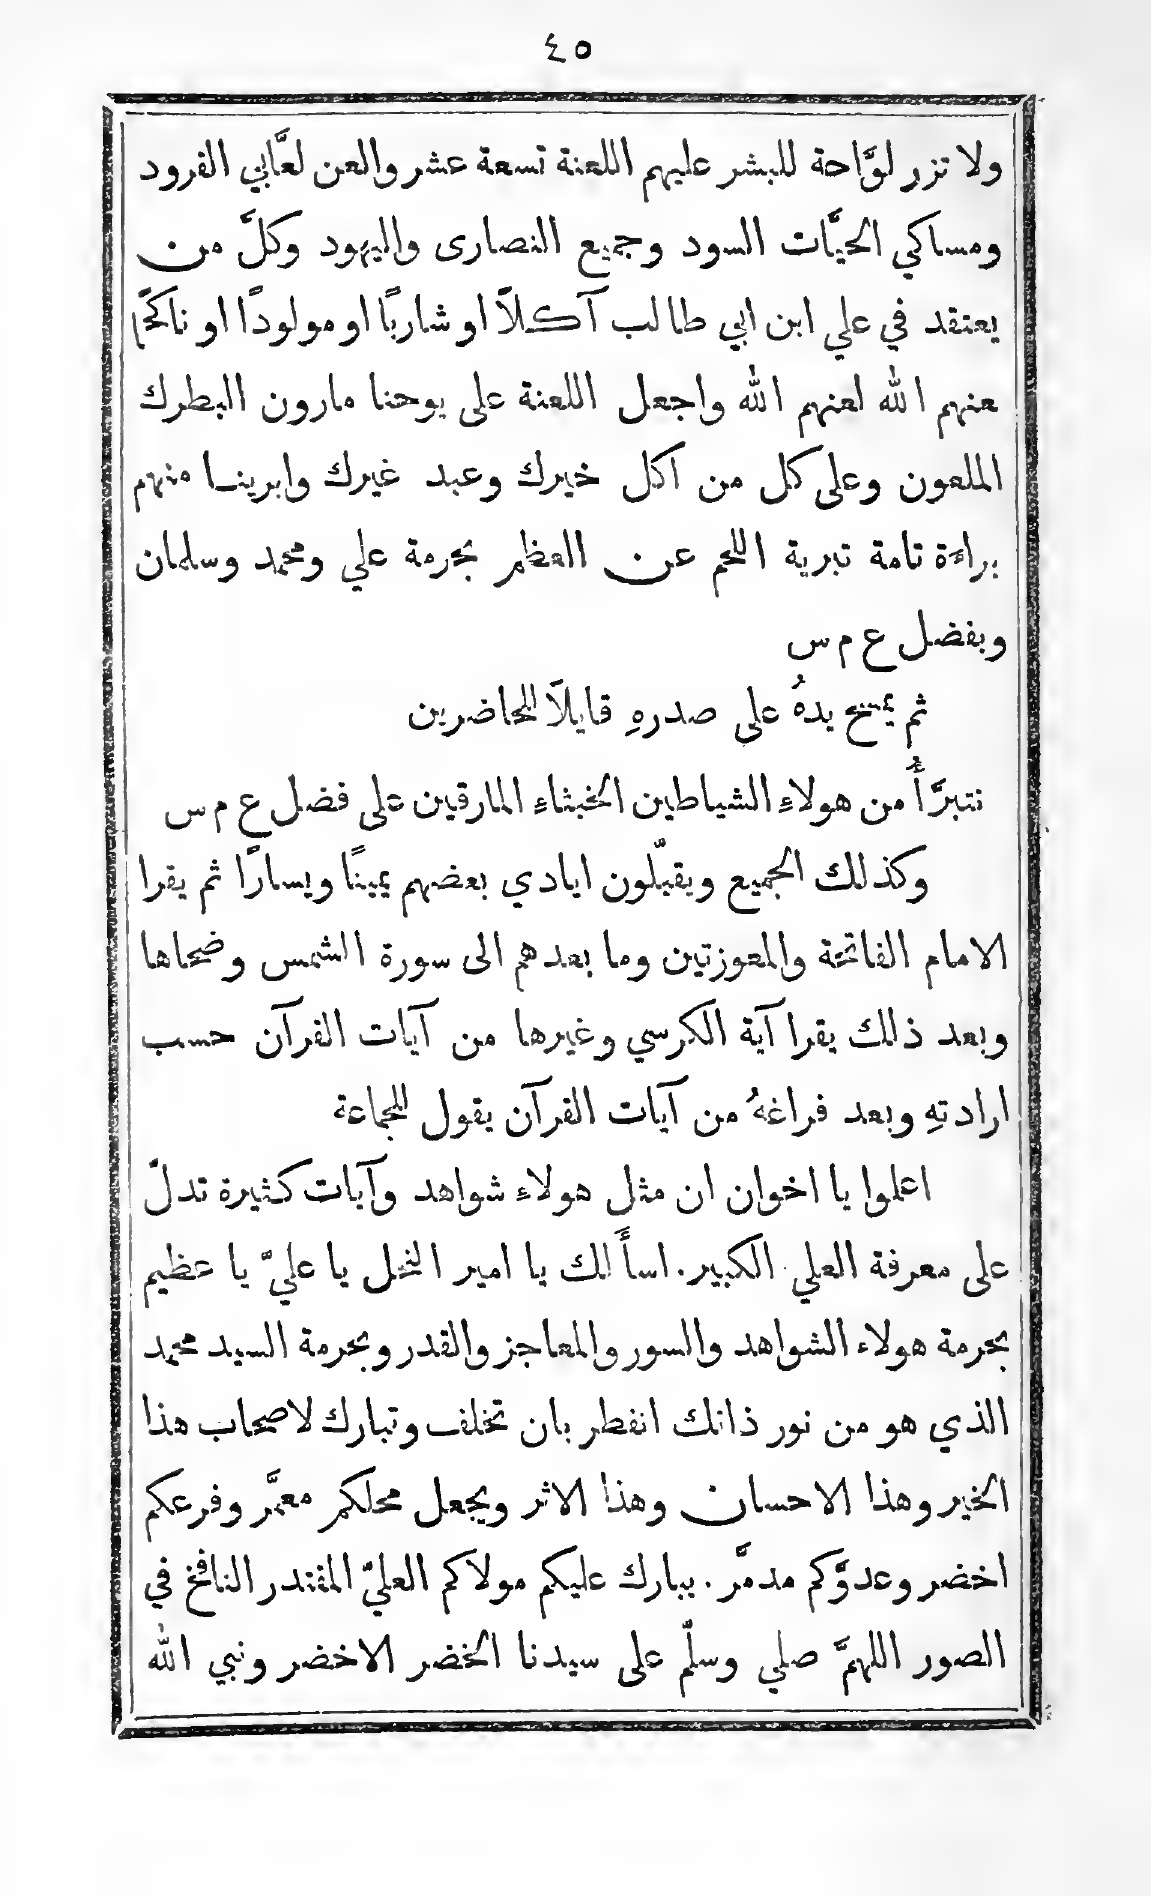 ٤٥
ولا تزر لوَّاحة للبشر عليهم اللعنة تسعة عشر والعن لعَّابي القرود
ومساكي الحيَّات السود وجميع النصارى واليهود وكلَّ من
يعتقد في علي ابن ابي طالب آكلاً او شاربًا او مولودًا او ناكحًا
عنهم الله لعنهم الله واجعل اللعنة على يوحنا مارون البطرك
الملعون وعلى كل من اكل خيرك وعبد غيرك وابرينا منهم
براءة تامة تبرية اللحم عن العظم بحرمة علي ومحمد وسلمان
وبفضل ع م س
ثم يمسح يدهُ على صدرهِ قايلاً للحاضرين
نتبرَّأُ من هولاءِ الشياطين الخبثاءِ المارقين على فضل ع م س
وكذلك الجميع ويقبّلون ايادي بعضهم يمينًا ويسارًا ثم يقرا
الامام الفاتحة والمعوزتين وما بعدهم الى سورة الشمس وضحاها
وبعد ذلك يقرا آية الكرسي وغيرها من آيات القرآن حسب
ارادتهِ وبعد فراغهُ من آيات القرآن يقول للجماعة
اعلموا يا اخوان ان مثل هولاءِ شواهد وآيات كثيرة تدلّ
على معرفة العلي الكبير. اسأَلك يا امير النحل يا عليّ يا عظيم
بحرمة هولاء الشواهد والسور والمعاجز والقدر وبحرمة السيد محمد
الذي هو من نور ذاتك انفطر بان تخلف وتبارك لاصحاب هذا
الخير وهذا الاحسان وهذا الاثر ويجعل محلكم معمَّر وفرعكم
اخضر وعدوَّكم مدمَّر. يبارك عليكم مولاكم العليّ المقتدر النافخ في
الصور اللهمَّ صلي وسلّم على سيدنا الخضر الاخضر ونبي الله